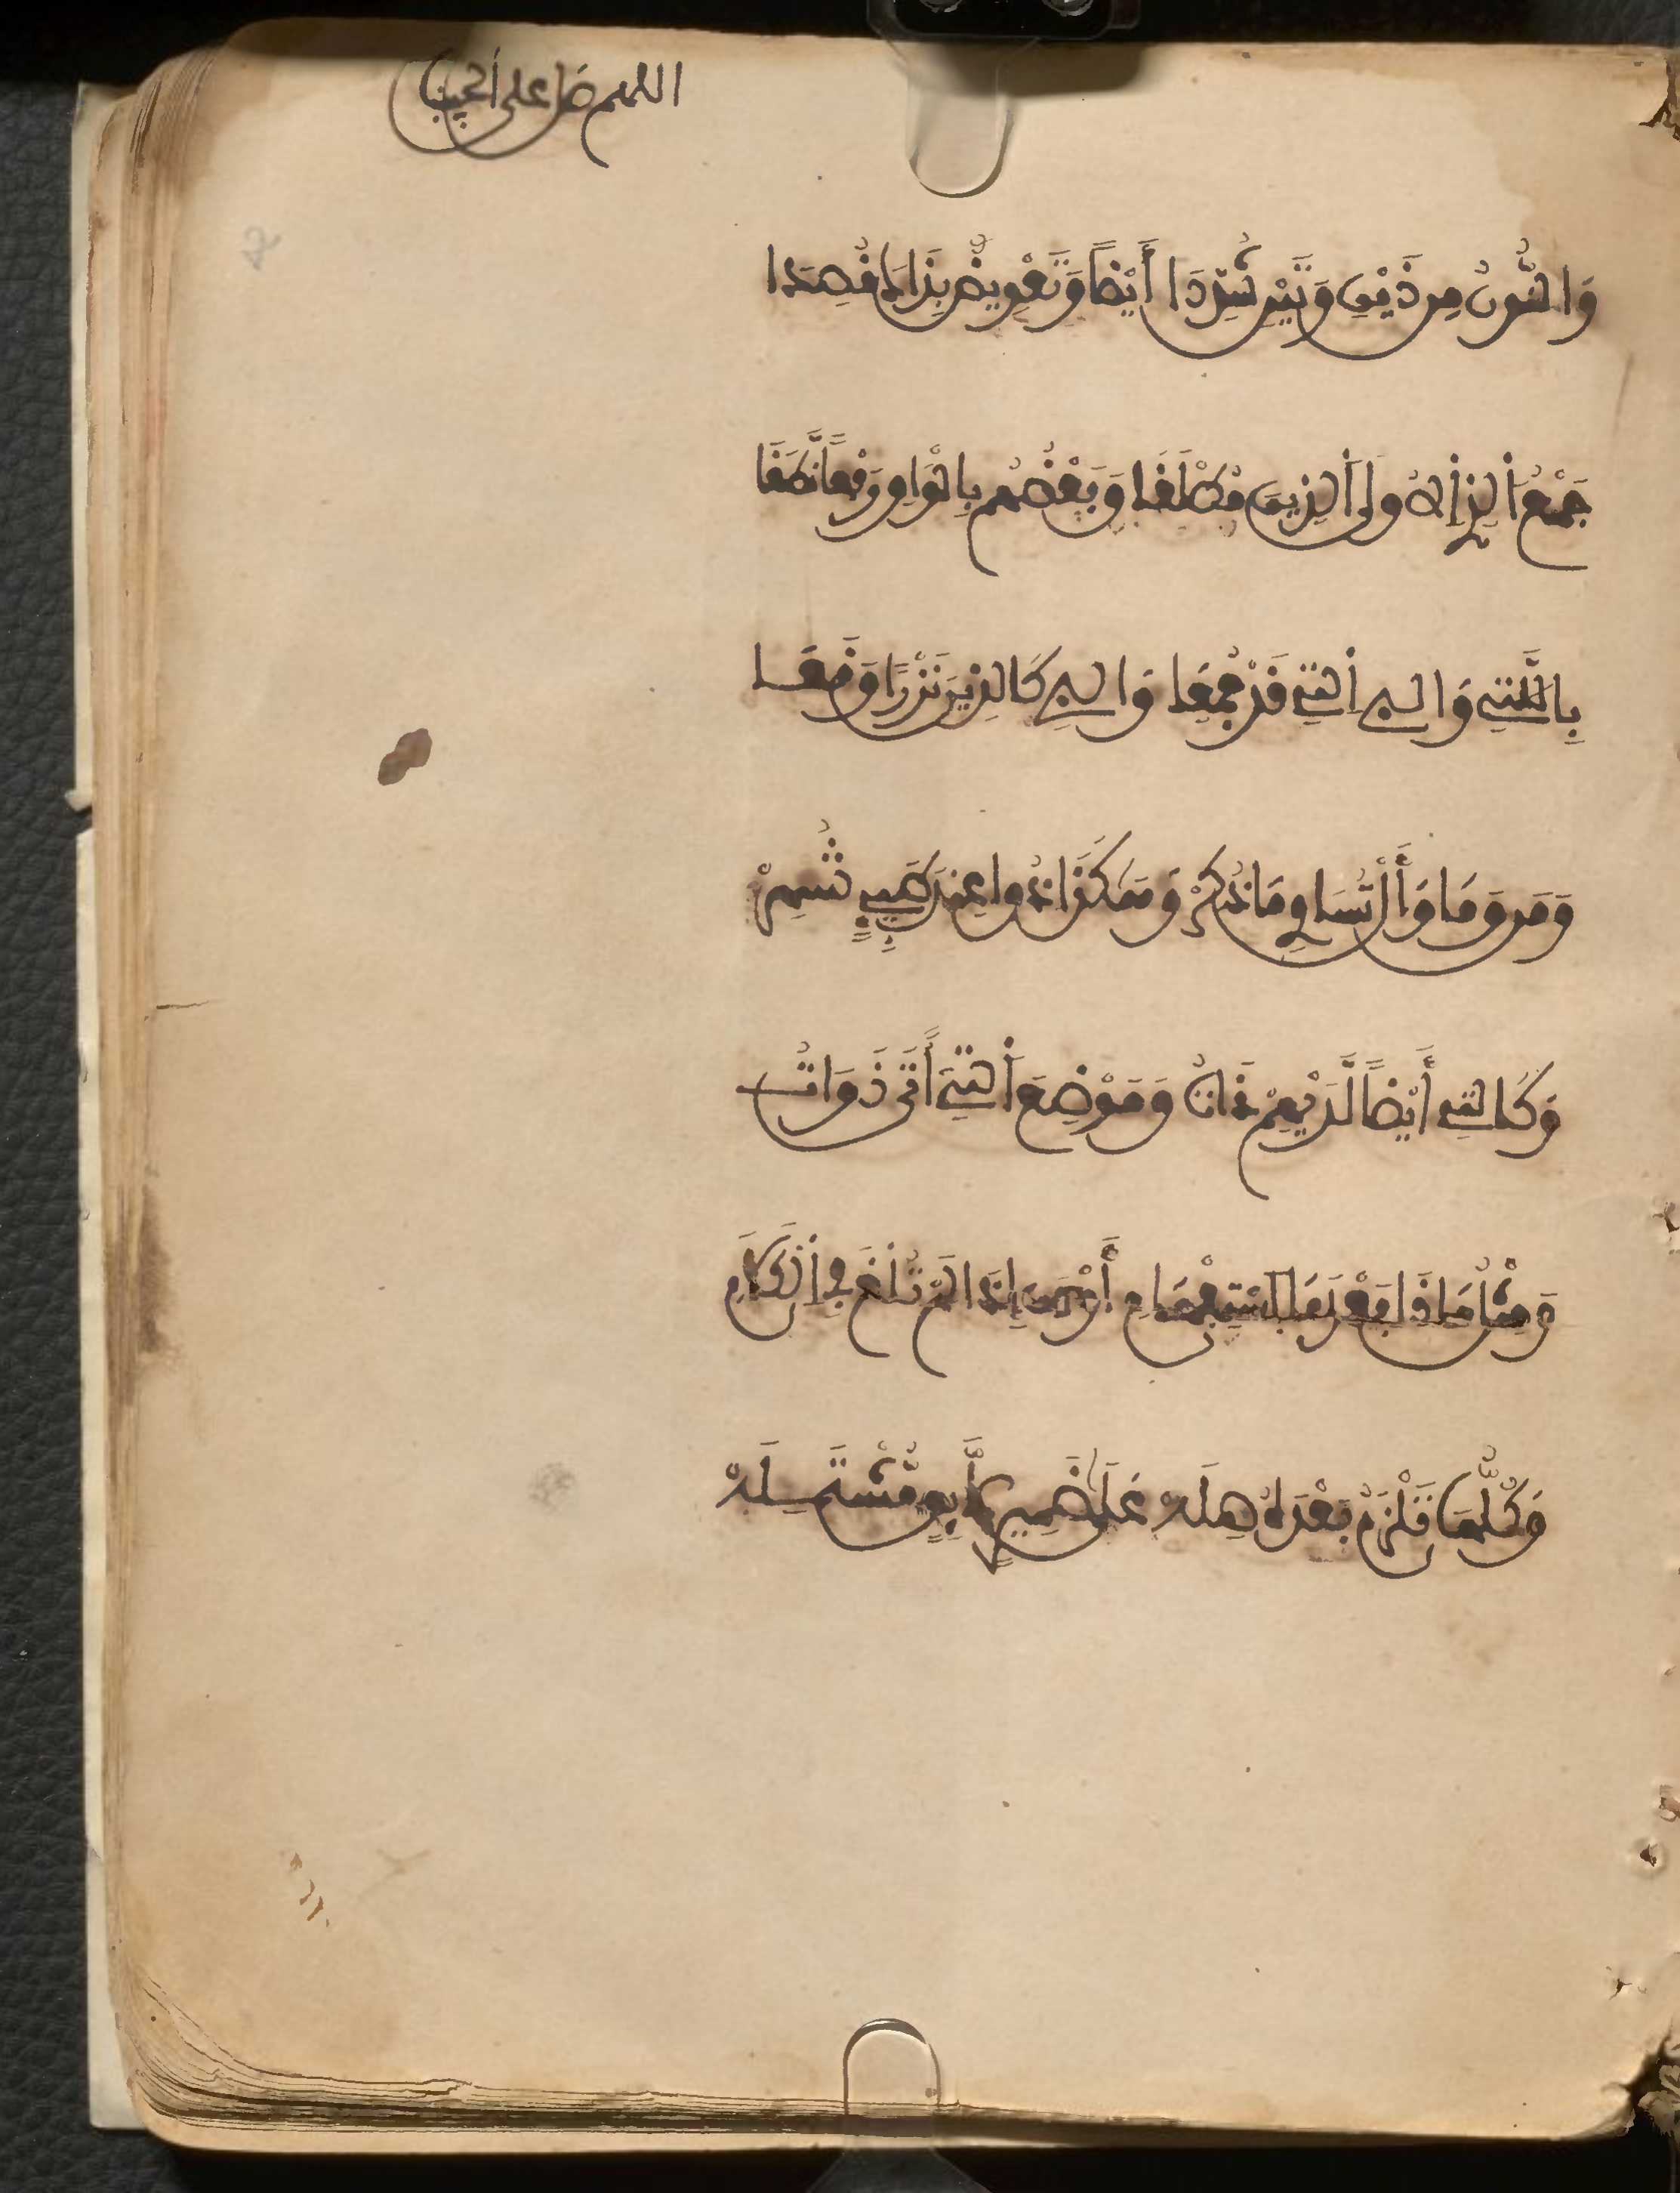 اللهم صل على الحبيبنا
وَالنُّونُ مِن ذَيْنِ وَتَيْنِ شُدِّدَا أَيْضًا وَتَعْوِيضٌ بِذَاكَ قُصِدَا
جَمْعُ الذِي الْأُولَى الذِينَ مُطْلَقَا وَبَعْضُهُم بِالْوَاوِ رَفْعًا نَّطَقَا
بِاللَّتِي وَالَّتِي قَدْ جُمِعَا وَالَّتِي كَالذِينَ نَزْرًا وَقَعَا
وَمَن وَمَا وَأَلْ تُسَاوِي مَا ذُكِرْ وَهَكَذَا ذُو عِندَ طَيِّئٍ شُهِرْ
وَكَالتِي أَيْضًا لَّدَيْهِمْ ذَاتُ وَمَوْضِعَ التِي أَتَى ذَوَاتُ
وَمِثْلُ مَا ذَا بَعْدَ مَا اسْتِفْهَامِ أَوْ مَن إِذَا لَمْ تُلْغَ فِي الْكَلَامِ
وَكُلُّهَا تَلْزَمُ بَعْدَهُ صِلَهْ عَلَى ضَمِيرٍ لَّائِقٍ مُّشْتَمِلَهْ